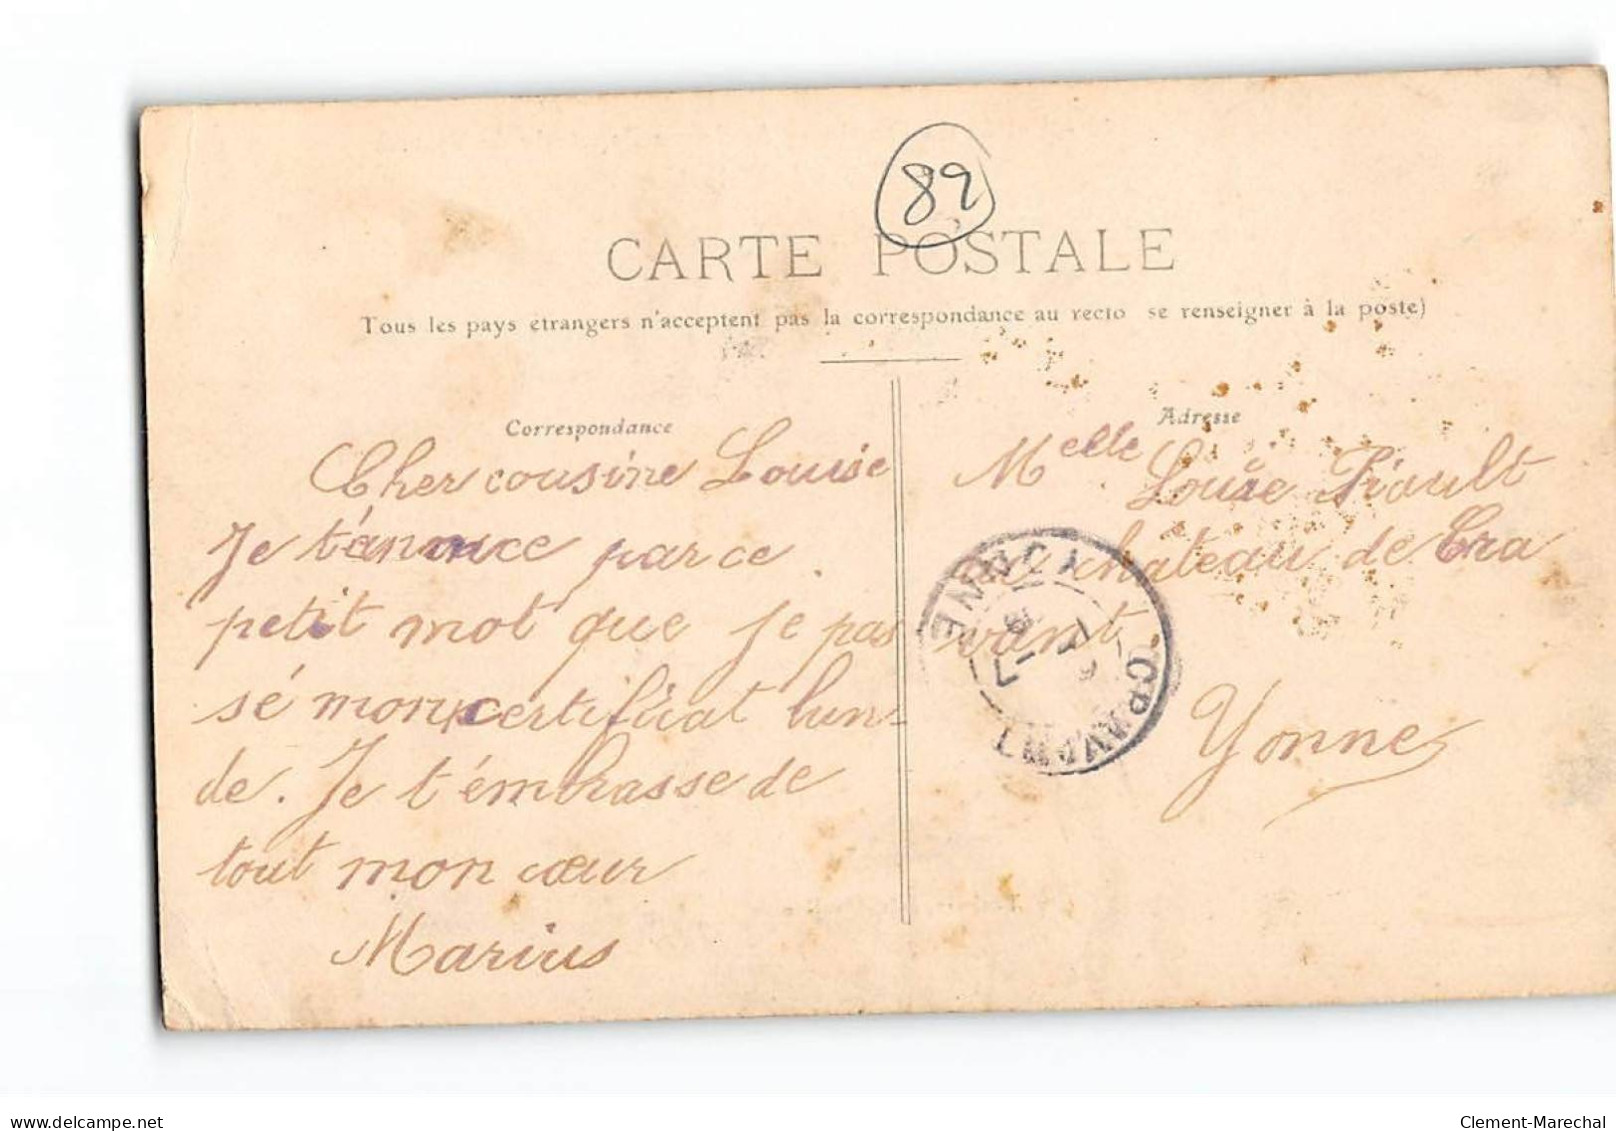 89
CARTE POSTALE
Tous les pays etrangers n'acceptent pas la correspondance au recto se renseigner à la poste)
Correspondance
Cher cousine Louise
Je t'anonce par ce
petit mot que je pas
sé mon certificat lun-
de. Je t'émbrasse de
tout mon cœur
Marius
Adresse
Melle Louise Piault
château de Cra
vant
Yonne
CRAVANT YONNE
www.delcampe.net
Clement-Marechal